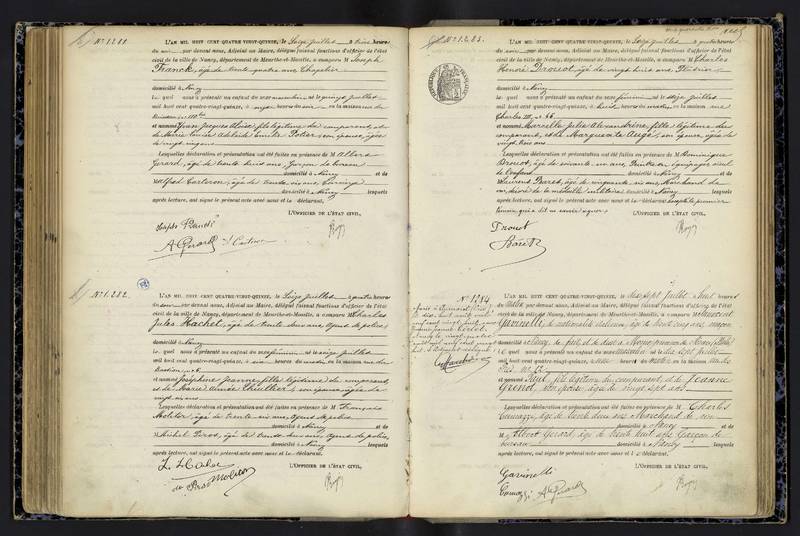 N° 1.281.
L'AN MIL HUIT CENT QUATRE-VINGT-QUINZE, le Seize juillet à trois heures
du soir par devant nous, Adjoint au Maire, délégué faisant fonctions d'officier de l'état
civil de la ville de Nancy, département de Meurthe-et-Moselle, a comparu M Joseph
Franck, âgé de trente quatre ans, Chapelier
domicilié à Nancy
lequel nous a présenté un enfant du sexe masculin né le quinze juillet
mil huit cent quatre-vingt-quinze, à onze heures du soir en la maison rue du
et nommé Jean Jacques Aloïse, fils légitime du comparant, et
de Marie Louise Adélaïde Emilie Potier, son épouse, âgée
de vingt
Lesquelles déclaration et présentation ont été faites en présence de M Albert
Gérard, âgé de trente huit ans, Garçon de bureau
domicilié à Nancy et de
M Alfred Carteron, âgé de trente six ans, Concierge
domicilié à Nancy lesquels
après lecture, ont signé le présent acte avec nous et le déclarant.
L'OFFICIER DE L'ÉTAT CIVIL,
N° 1.282.
L'AN MIL HUIT CENT QUATRE-VINGT-QUINZE, le Seize juillet à quatre heures
du soir par devant nous, Adjoint au Maire, délégué faisant fonctions d'officier de l'état
civil de la ville de Nancy, département de Meurthe-et-Moselle, a comparu M Charles
Jules Hachet, âgé de trente deux ans, Agent de police
domicilié à Nancy
lequel nous a présenté un enfant du sexe féminin né le seize juillet
mil huit cent quatre-vingt-quinze, à six heures du matin en la maison rue du
Bastion n° 6.
et nommé Joséphine Jeanne, fille légitime du comparant,
et de Marie Aimée Thuillier, son épouse, âgée de
vingt six ans
Lesquelles déclaration et présentation ont été faites en présence de M François
Molitor, âgé de trente six ans, Agent de police
domicilié à Nancy et de
M Michel Piros, âgé de trente deux ans, Agent de police,
domicilié à Nancy lesquels
après lecture, ont signé le présent acte avec nous et le déclarant.
L'OFFICIER DE L'ÉTAT CIVIL,
N° 1.283.
L'AN MIL HUIT CENT QUATRE-VINGT-QUINZE, le Seize juillet à quatre heures
du soir par devant nous, Adjoint au Maire, délégué faisant fonctions d'officier de l'état
civil de la ville de Nancy, département de Meurthe-et-Moselle, a comparu M Charles
Honoré Drouot, âgé de vingt huit ans, Plâtrier
domicilié à Nancy
lequel nous a présenté un enfant du sexe féminin né le seize juillet
mil huit cent quatre-vingt-quinze, à huit heures du matin en la maison rue
Charles III, n° 66
et nommé Marcelle Julie Alexandrine, fille légitime du
comparant, et de Marguerite Augé, son épouse, âgée de
vingt trois ans
Lesquelles déclaration et présentation ont été faites en présence de M Dominique
Drouot, âgé de soixante un ans,
domicilié à Nancy et de
M Laurent Baret, âgé de cinquante six ans, Marchand de
vin, décoré de la médaille militaire domicilié à Nancy
après lecture, ont signé le présent acte avec nous et le déclarant, excepté le premier
témoin qui a dit ne savoir signer.
L'OFFICIER DE L'ÉTAT CIVIL,
Drouot
Baret
N° 1284
L'AN MIL HUIT CENT QUATRE-VINGT-QUINZE, le Dix sept juillet à huit heures
du matin par devant nous, Adjoint au Maire, délégué faisant fonctions d'officier de l'état
civil de la ville de Nancy, département de Meurthe-et-Moselle, a comparu M
Gavinelli, de nationalité italienne, âgé de trente cinq ans, maçon
lequel nous a présenté un enfant du sexe masculin né le dix sept juillet
mil huit cent quatre-vingt-quinze, à une heure du matin en la maison
et nommé Paul, fils légitime du comparant, et de Jeanne
son épouse, âgée de vingt sept ans
Lesquelles déclaration et présentation ont été faites en présence de M Charles
âgé de trente deux ans, Marchand de vin
domicilié à Nancy et de
M Albert Gérard, âgé de trente huit ans, Garçon de
bureau domicilié à Nancy lesquels
après lecture, ont signé le présent acte avec nous et le déclarant.
L'OFFICIER DE L'ÉTAT CIVIL,
Gavinelli